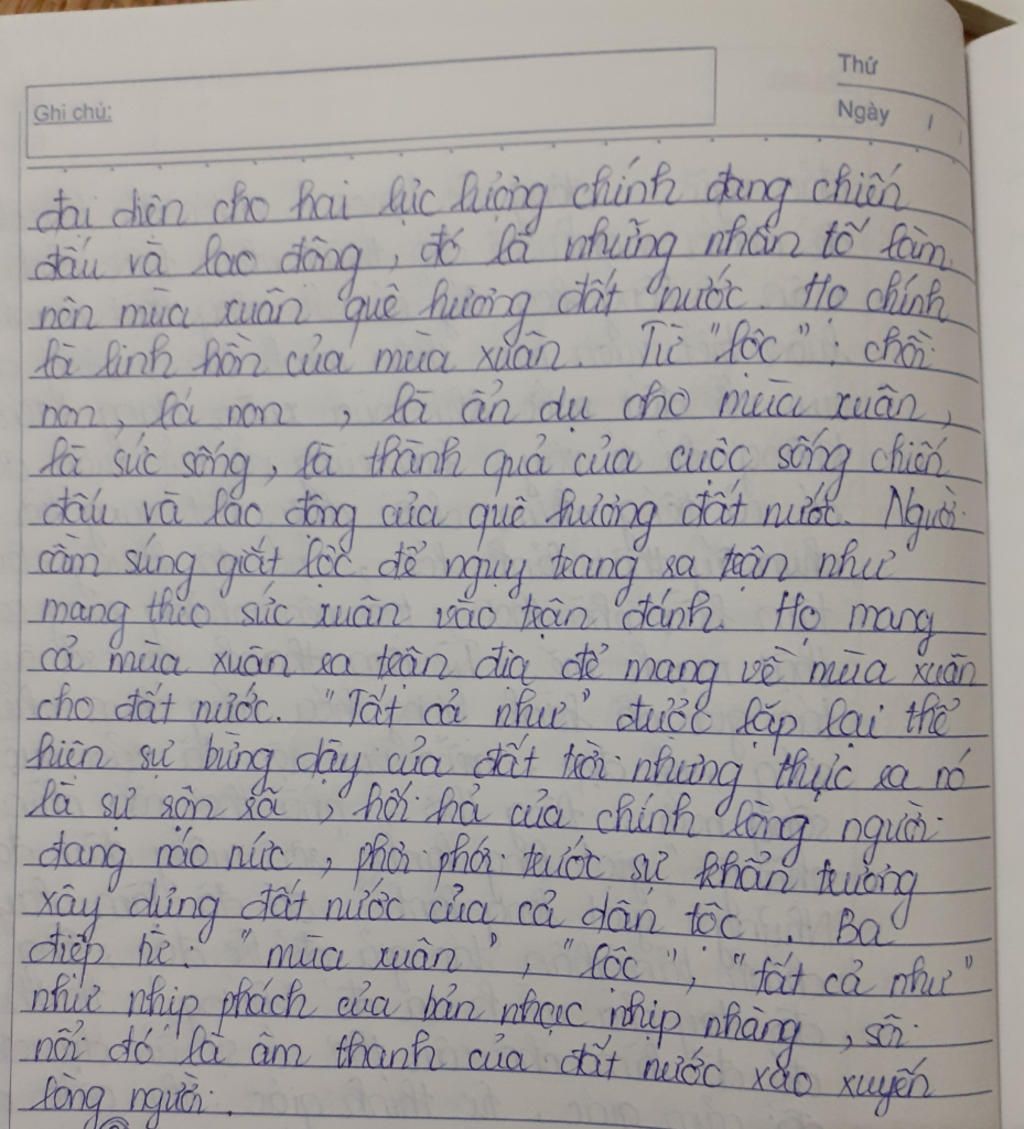 Thứ
Ghi chú:
Ngày / /
đại diện cho hai lực lượng chính đang chiến
đấu và lao động, đó là những nhân tố làm
nên mùa xuân quê hương đất nước. Họ chính
là linh hồn của mùa xuân. Từ "lộc": chồi
non, lá non, là ẩn dụ cho mùa xuân,
là sức sống, là thành quả của cuộc sống chiến
đấu và lao động của quê hương đất nước. Người
cầm súng giắt lộc để ngụy trang ra trận như
mang theo sức xuân vào trận đánh. Họ mang
cả mùa xuân ra trận địa để mang về mùa xuân
cho đất nước. "Tất cả như" được lặp lại thể
hiện sự bừng dậy của đất trời nhưng thực ra nó
là sự rộn rã, hối hả của chính lòng người
đang náo nức, phơi phới trước sự khẩn trương
xây dựng đất nước của cả dân tộc. Ba
điệp từ: "mùa xuân", "lộc", "tất cả như"
như nhịp phách của bản nhạc nhịp nhàng, sôi
nổi đó là âm thanh của đất nước xao xuyến
lòng người.